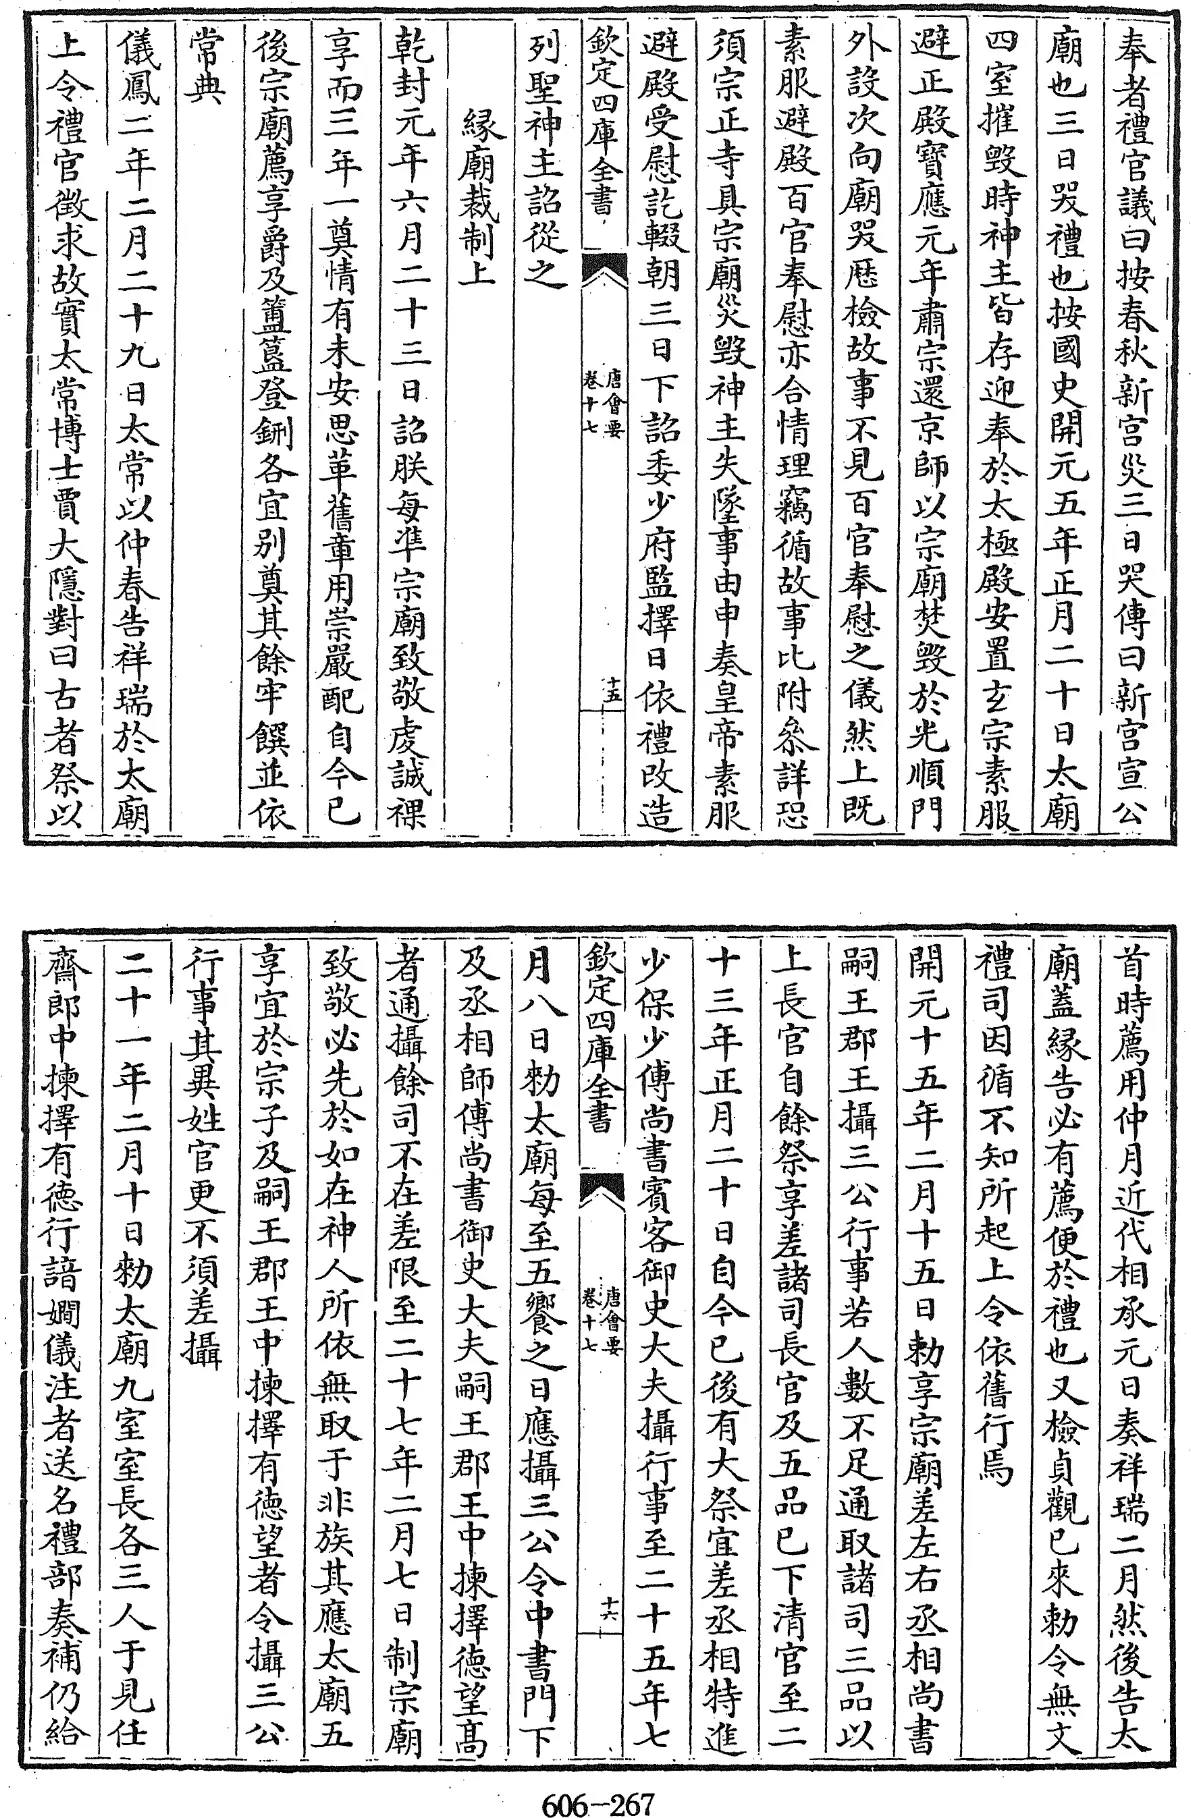 奉者禮官議曰按春秋新宮災三日哭傳曰新宮宣公
廟也三日哭禮也按國史開元五年正月二十日太廟
四室摧毀時神主皆存迎奉於太極殿安置玄宗素服
避正殿寶應元年肅宗還京師以宗廟焚毀於光順門
外設次向廟哭歴檢故事不見百官奉慰之儀然上既
素服避殿百官奉慰亦合情理竊循故事比附叅詳恐
須宗正寺具宗廟災毀神主失墜事由申奏皇帝素服
避殿受慰訖輟朝三日下詔委少府監擇日依禮改造
欽定四庫全書
唐會要
卷十七
十五
列聖神主詔從之
縁廟裁制上
乾封元年六月二十三日詔朕每準宗廟致敬虔誠祼
享而三年一奠情有未安思革舊章用崇嚴配自今已
後宗廟薦享爵及簠簋登鉶各宜別奠其餘牢饌並依
常典
儀鳳二年二月二十九日太常以仲春告祥瑞於太廟
上令禮官徵求故實太常博士賈大隱對曰古者祭以
首時薦用仲月近代相承元日奏祥瑞二月然後告太
廟蓋縁告必有薦便於禮也又檢貞觀已來勅令無文
禮司因循不知所起上令依舊行焉
開元十五年二月十五日勅享宗廟差左右丞相尚書
嗣王郡王攝三公行事若人數不足通取諸司三品以
上長官自餘祭享差諸司長官及五品已下清官至二
十三年正月二十日自今已後有大祭宜差丞相特進
少保少傅尚書賓客御史大夫攝行事至二十五年七
欽定四庫全書
唐會要
卷十七
十六
月八日勅太廟每至五饗之日應攝三公令中書門下
及丞相師傅尚書御史大夫嗣王郡王中揀擇德望髙
者通攝餘司不在差限至二十七年二月七日制宗廟
致敬必先於如在神人所依無取于非族其應太廟五
享宜於宗子及嗣王郡王中揀擇有德望者令攝三公
行事其異姓官更不須差攝
二十一年二月十日勅太廟九室室長各三人于見任
齋郎中揀擇有德行諳嫺儀注者送名禮部奏補仍給
606-267